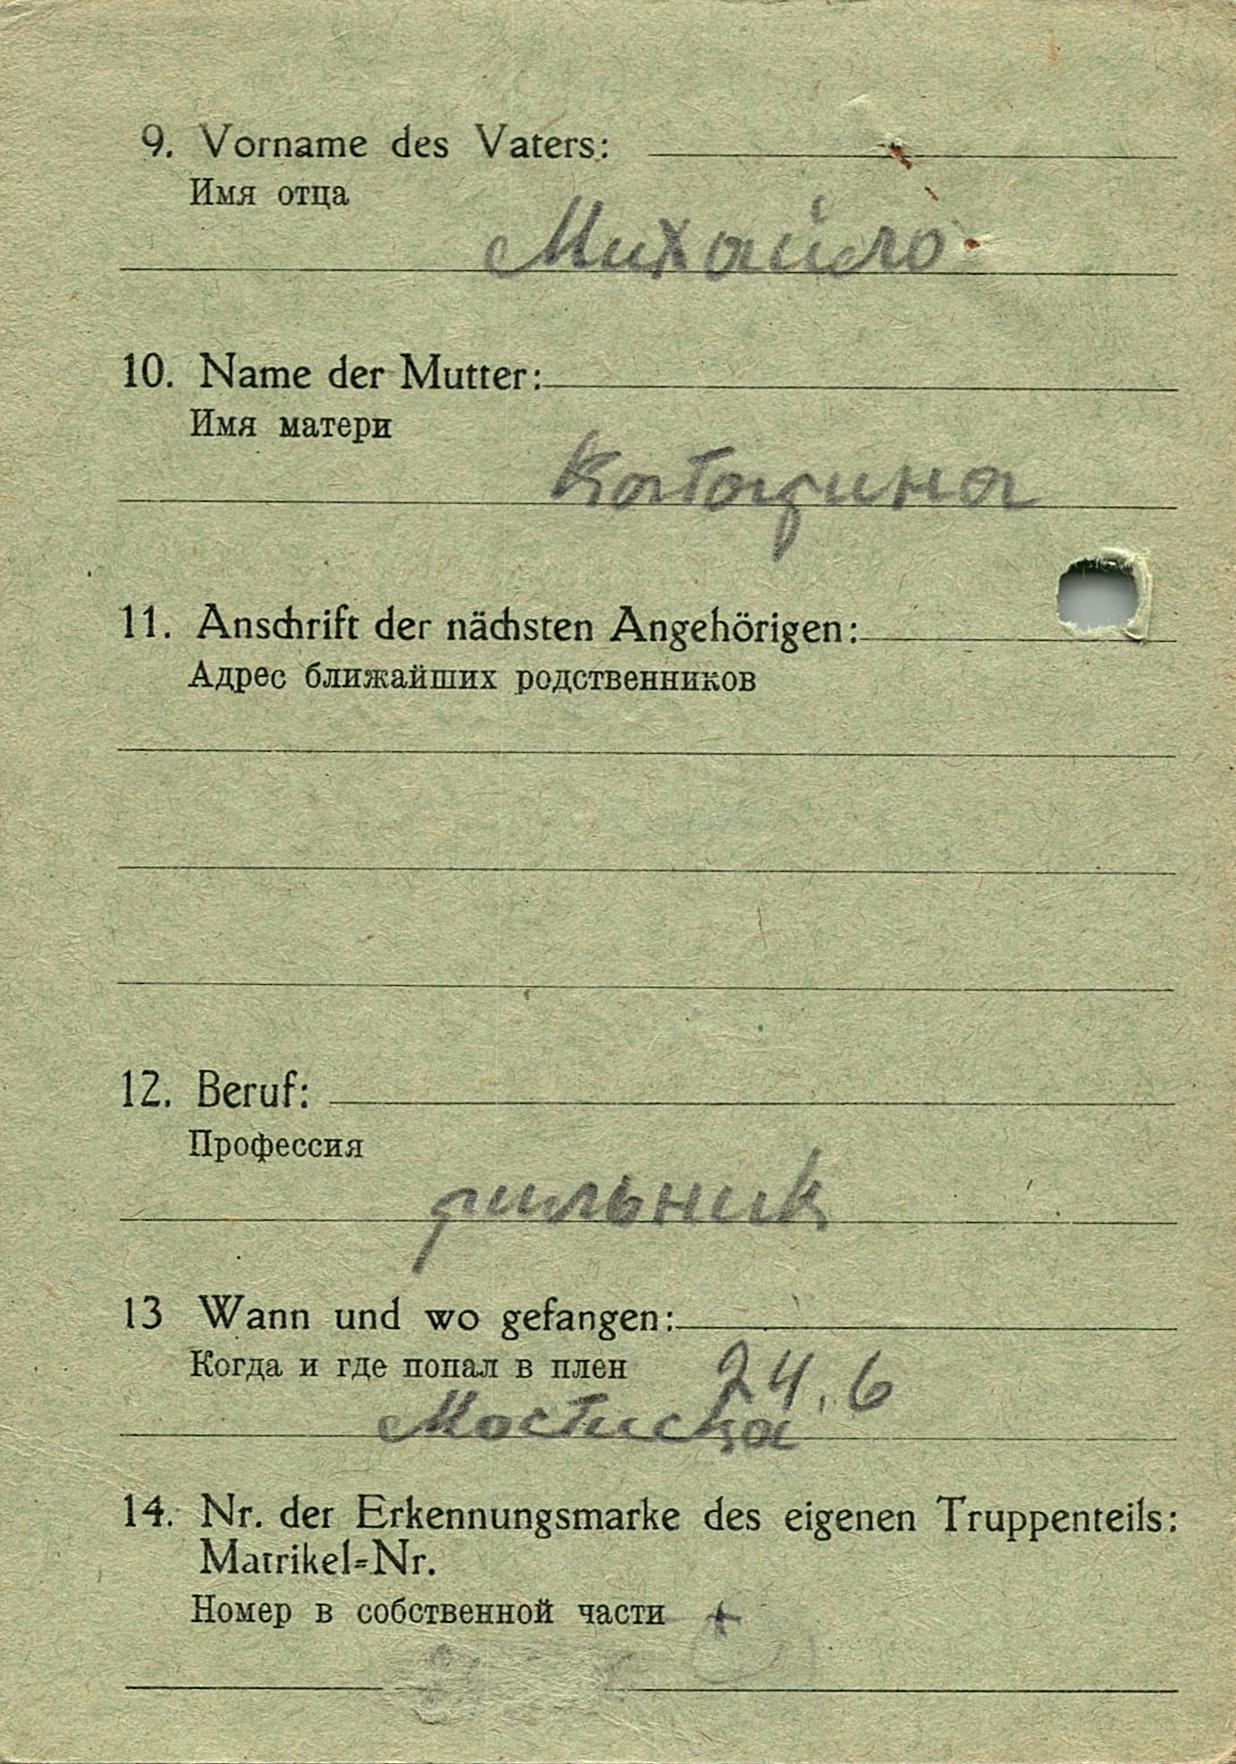 9. Vorname des Vaters:
Имя отца
Михайло
10. Name der Mutter:
Имя матери
Катарина
11. Anschrift der nächsten Angehörigen:
Адрес ближайших родственников
12. Beruf:
Профессия
рильник
13 Wann und wo gefangen:
Когда и где попал в плен 24.6
Мостиска
14. Nr. der Erkennungsmarke des eigenen Truppenteils:
Matrikel=Nr.
Номер в собственной части +